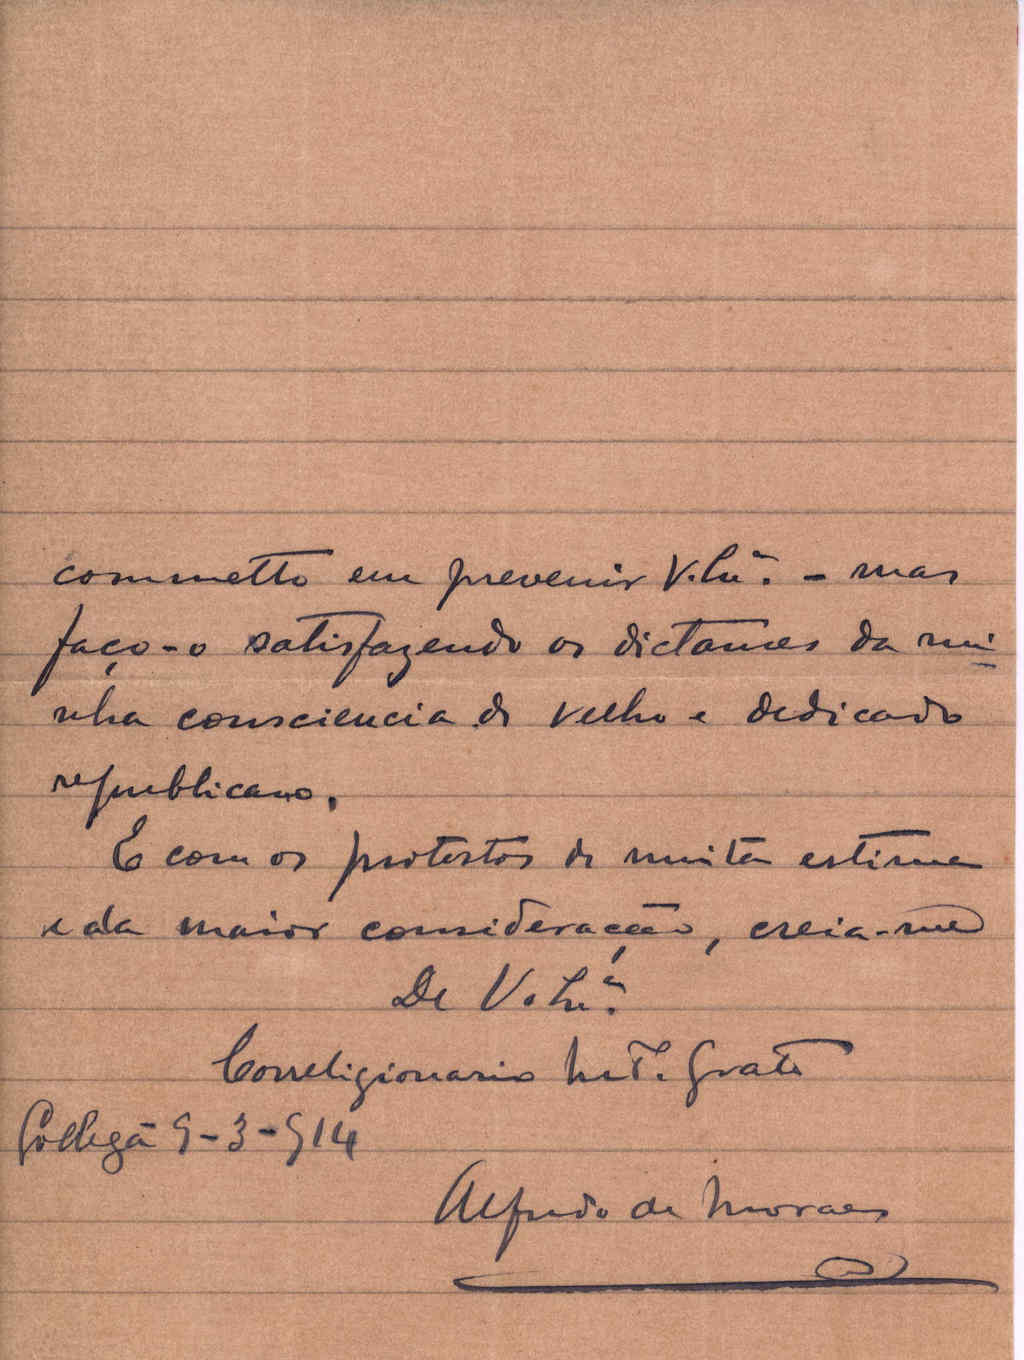 commetto em prevenir V. Exª. - mas
faço-o satisfazendo os dictames da mi
nha consciencia de velho e dedicado
republicano.
E com os protestos de muita estima
e da maior consideração, creia-me
De V. Exª.
Correligionario Mt. Grato
Gollegã 9-3-914
Alfredo de Moraes